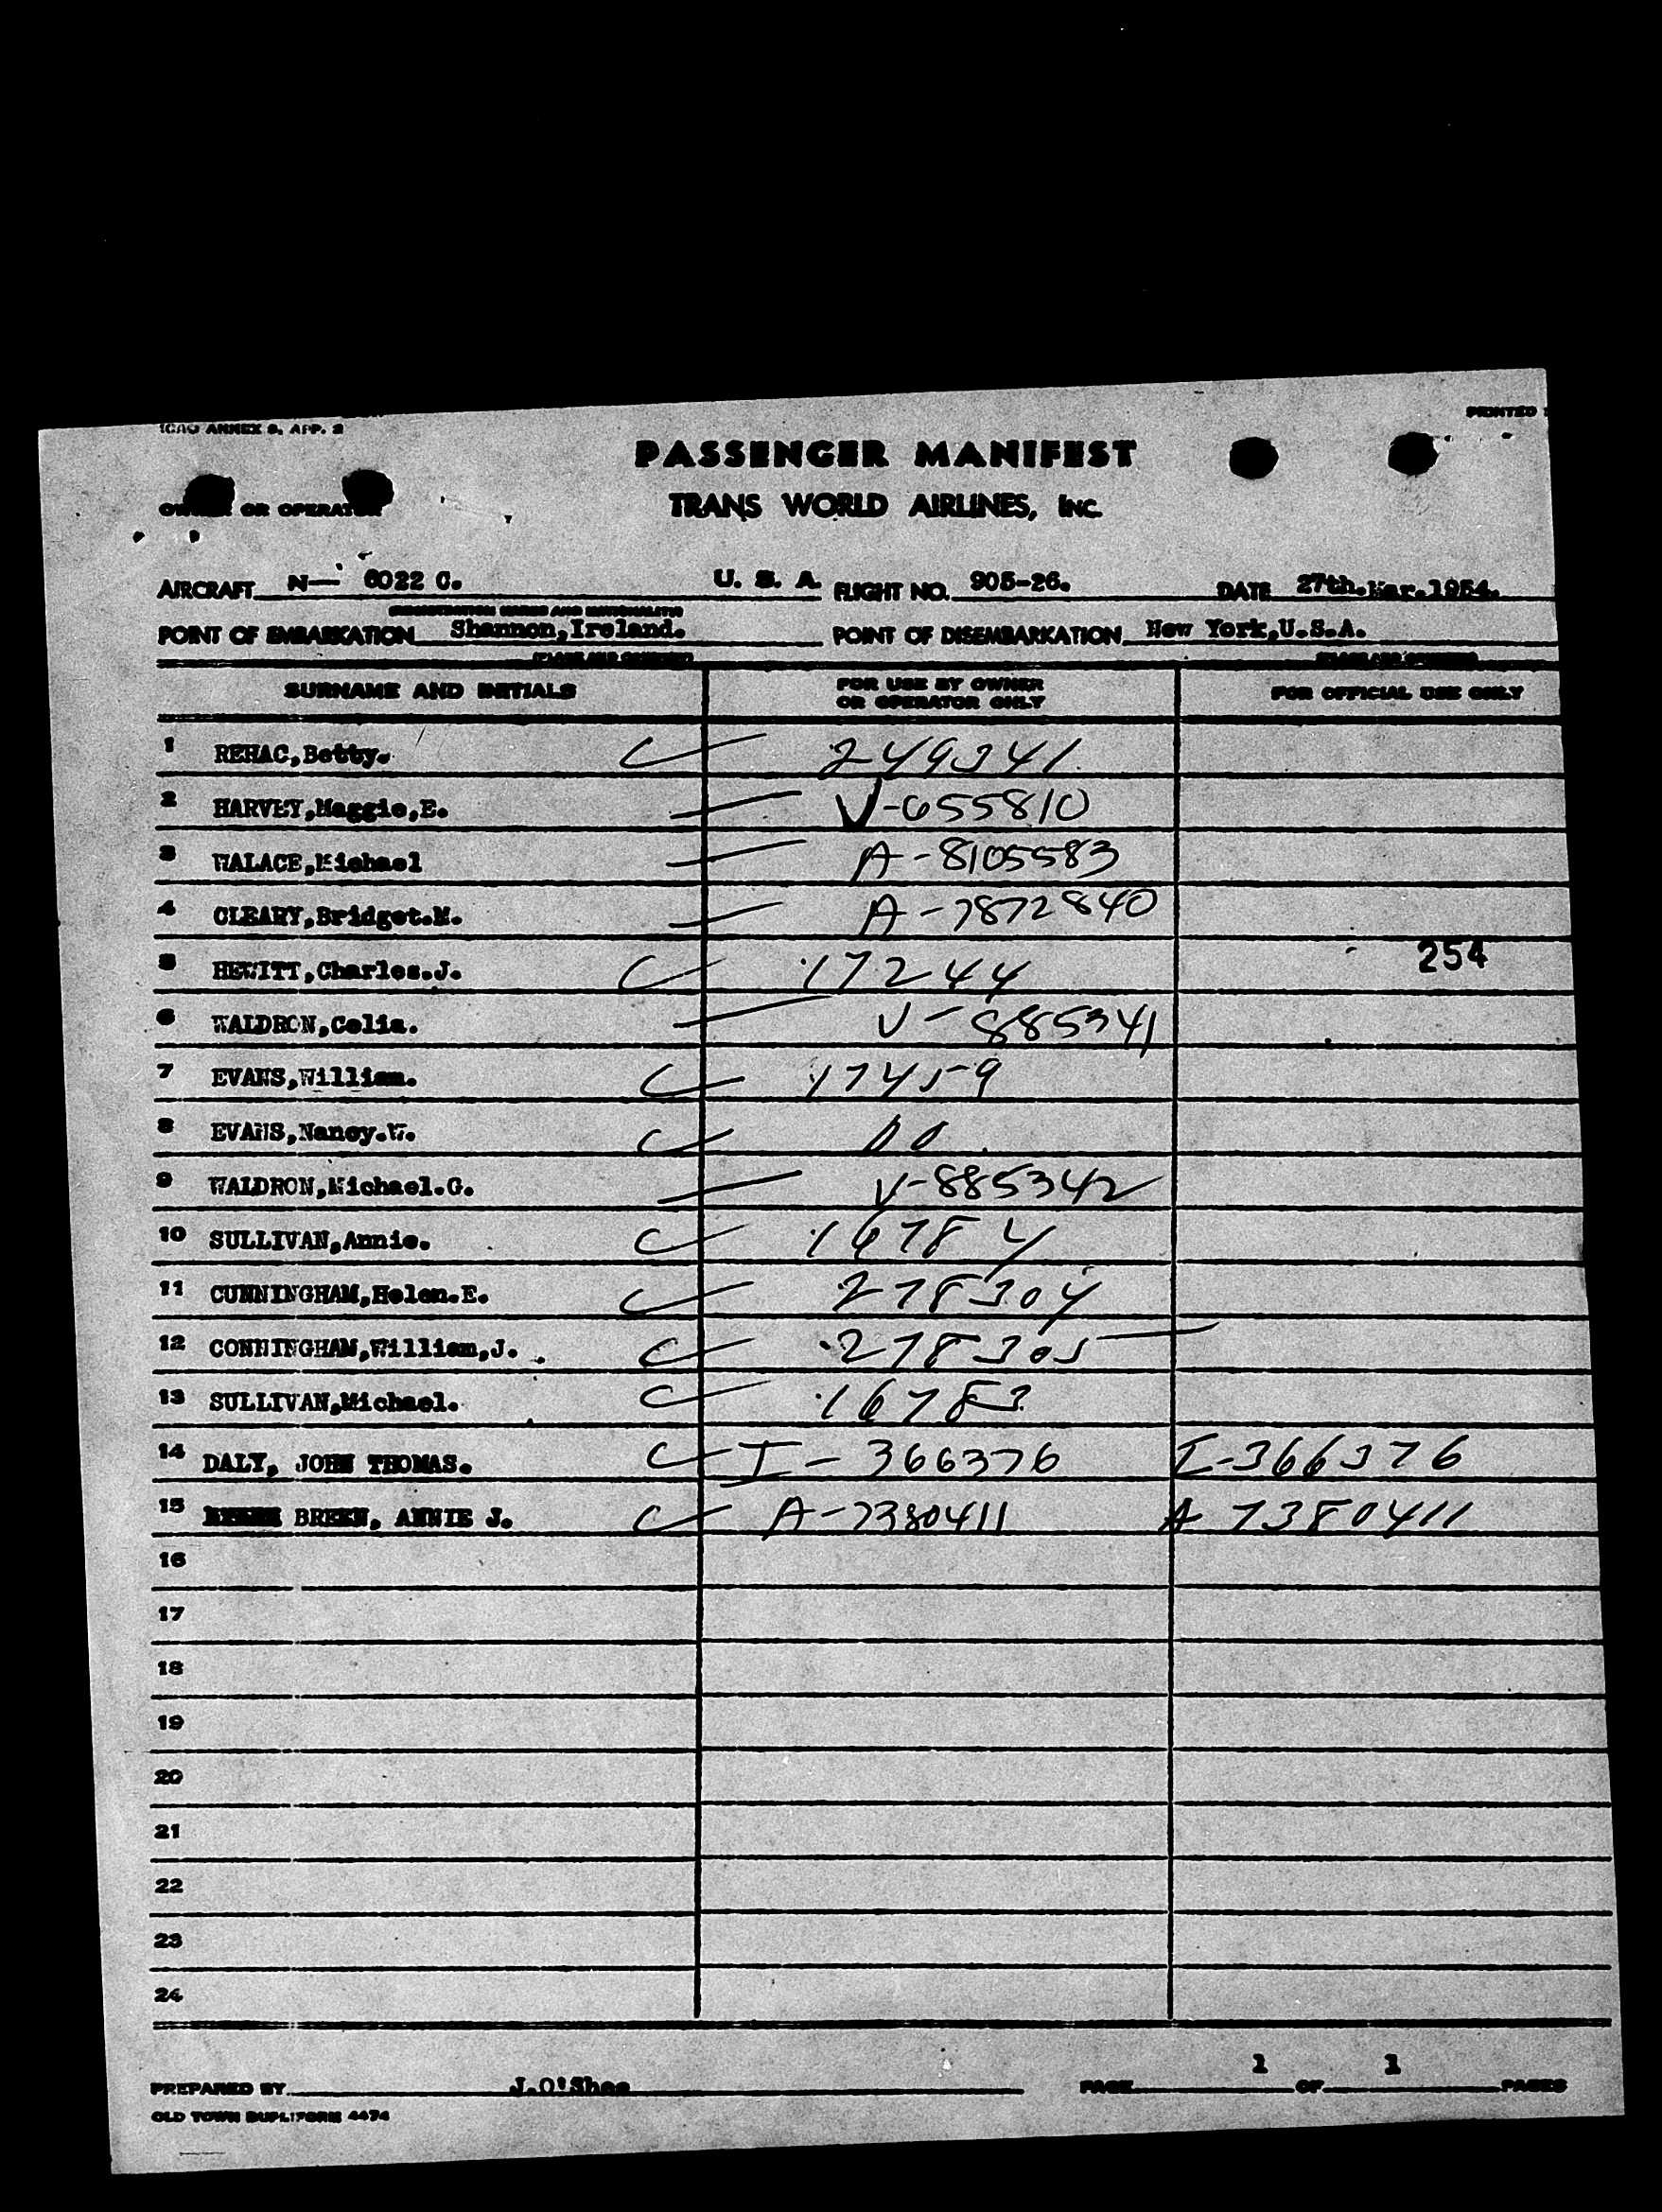 ICAO ANNEX 9, APP. 2
PRINTED
PASSENGER MANIFEST
OWNER OR OPERATOR TRANS WORLD AIRLINES, INC.
AIRCRAFT N— 6022 C. U. S. A. FLIGHT NO. 905-26. DATE 27th.Mar.1954.
(REGISTRATION MARKS AND NATIONALITY)
POINT OF EMBARKATION Shannon,Ireland. POINT OF DISEMBARKATION New York,U.S.A.
(PLACE AND COUNTRY) (PLACE AND COUNTRY)
SURNAME AND INITIALS FOR USE BY OWNER OR OPERATOR ONLY FOR OFFICIAL USE ONLY
1 REHAC,Betty. 249341
2 HARVEY,Maggie,E. V-655810
3 WALACE,Michael A-8105583
4 CLEARY,Bridget.M. A-7872840
5 HEWITT,Charles.J. 17244 254
6 WALDRON,Celia. V-885341
7 EVANS,William. 17459
8 EVANS,Nancy.W.
9 WALDRON,Michael.G. V-885342
10 SULLIVAN,Annie. 16784
11 CUNNINGHAM,Helen.E. 278304
12 CONNINGHAM,William,J. 278305
13 SULLIVAN,Michael. 16783
14 DALY, JOHN THOMAS. I-366376 I-366376
15 BREEN, ANNIE J. A-7380411 A 7380411
16
17
18
19
20
21
22
23
24
PREPARED BY J.O'Shee PAGE 1 OF 1 PAGES
OLD TOWN DUPLIFORM 4474